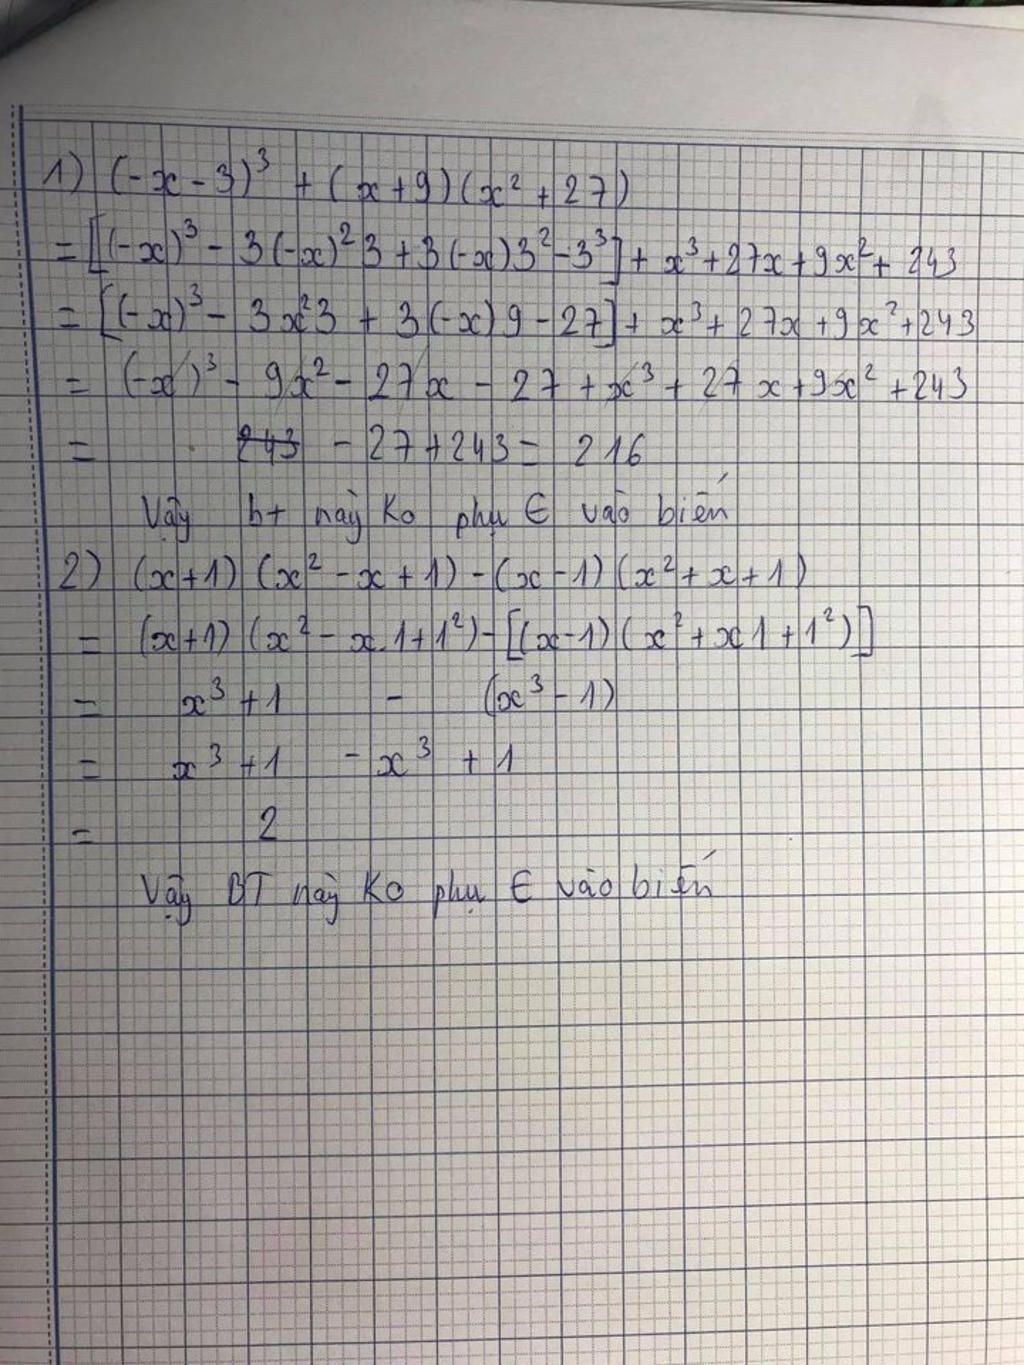 1) (-x-3)³ + (x+9)(x²+27)
= [(-x)³ - 3(-x)²3 + 3(-x)3² - 3³] + x³ + 27x + 9x² + 243
= [(-x)³ - 3x²3 + 3(-x)9 - 27] + x³ + 27x + 9x² + 243
= (-x)³ - 9x² - 27x - 27 + x³ + 27x + 9x² + 243
= 243 - 27 + 243 = 216
Vậy bt này Ko phụ € vào biến
2) (x+1)(x² - x + 1) - (x-1)(x² + x + 1)
= (x+1)(x² - x.1 + 1²) - [(x-1)(x² + x1 + 1²)]
= x³ + 1 - (x³ - 1)
= x³ + 1 - x³ + 1
= 2
Vậy BT này Ko phụ € vào biến